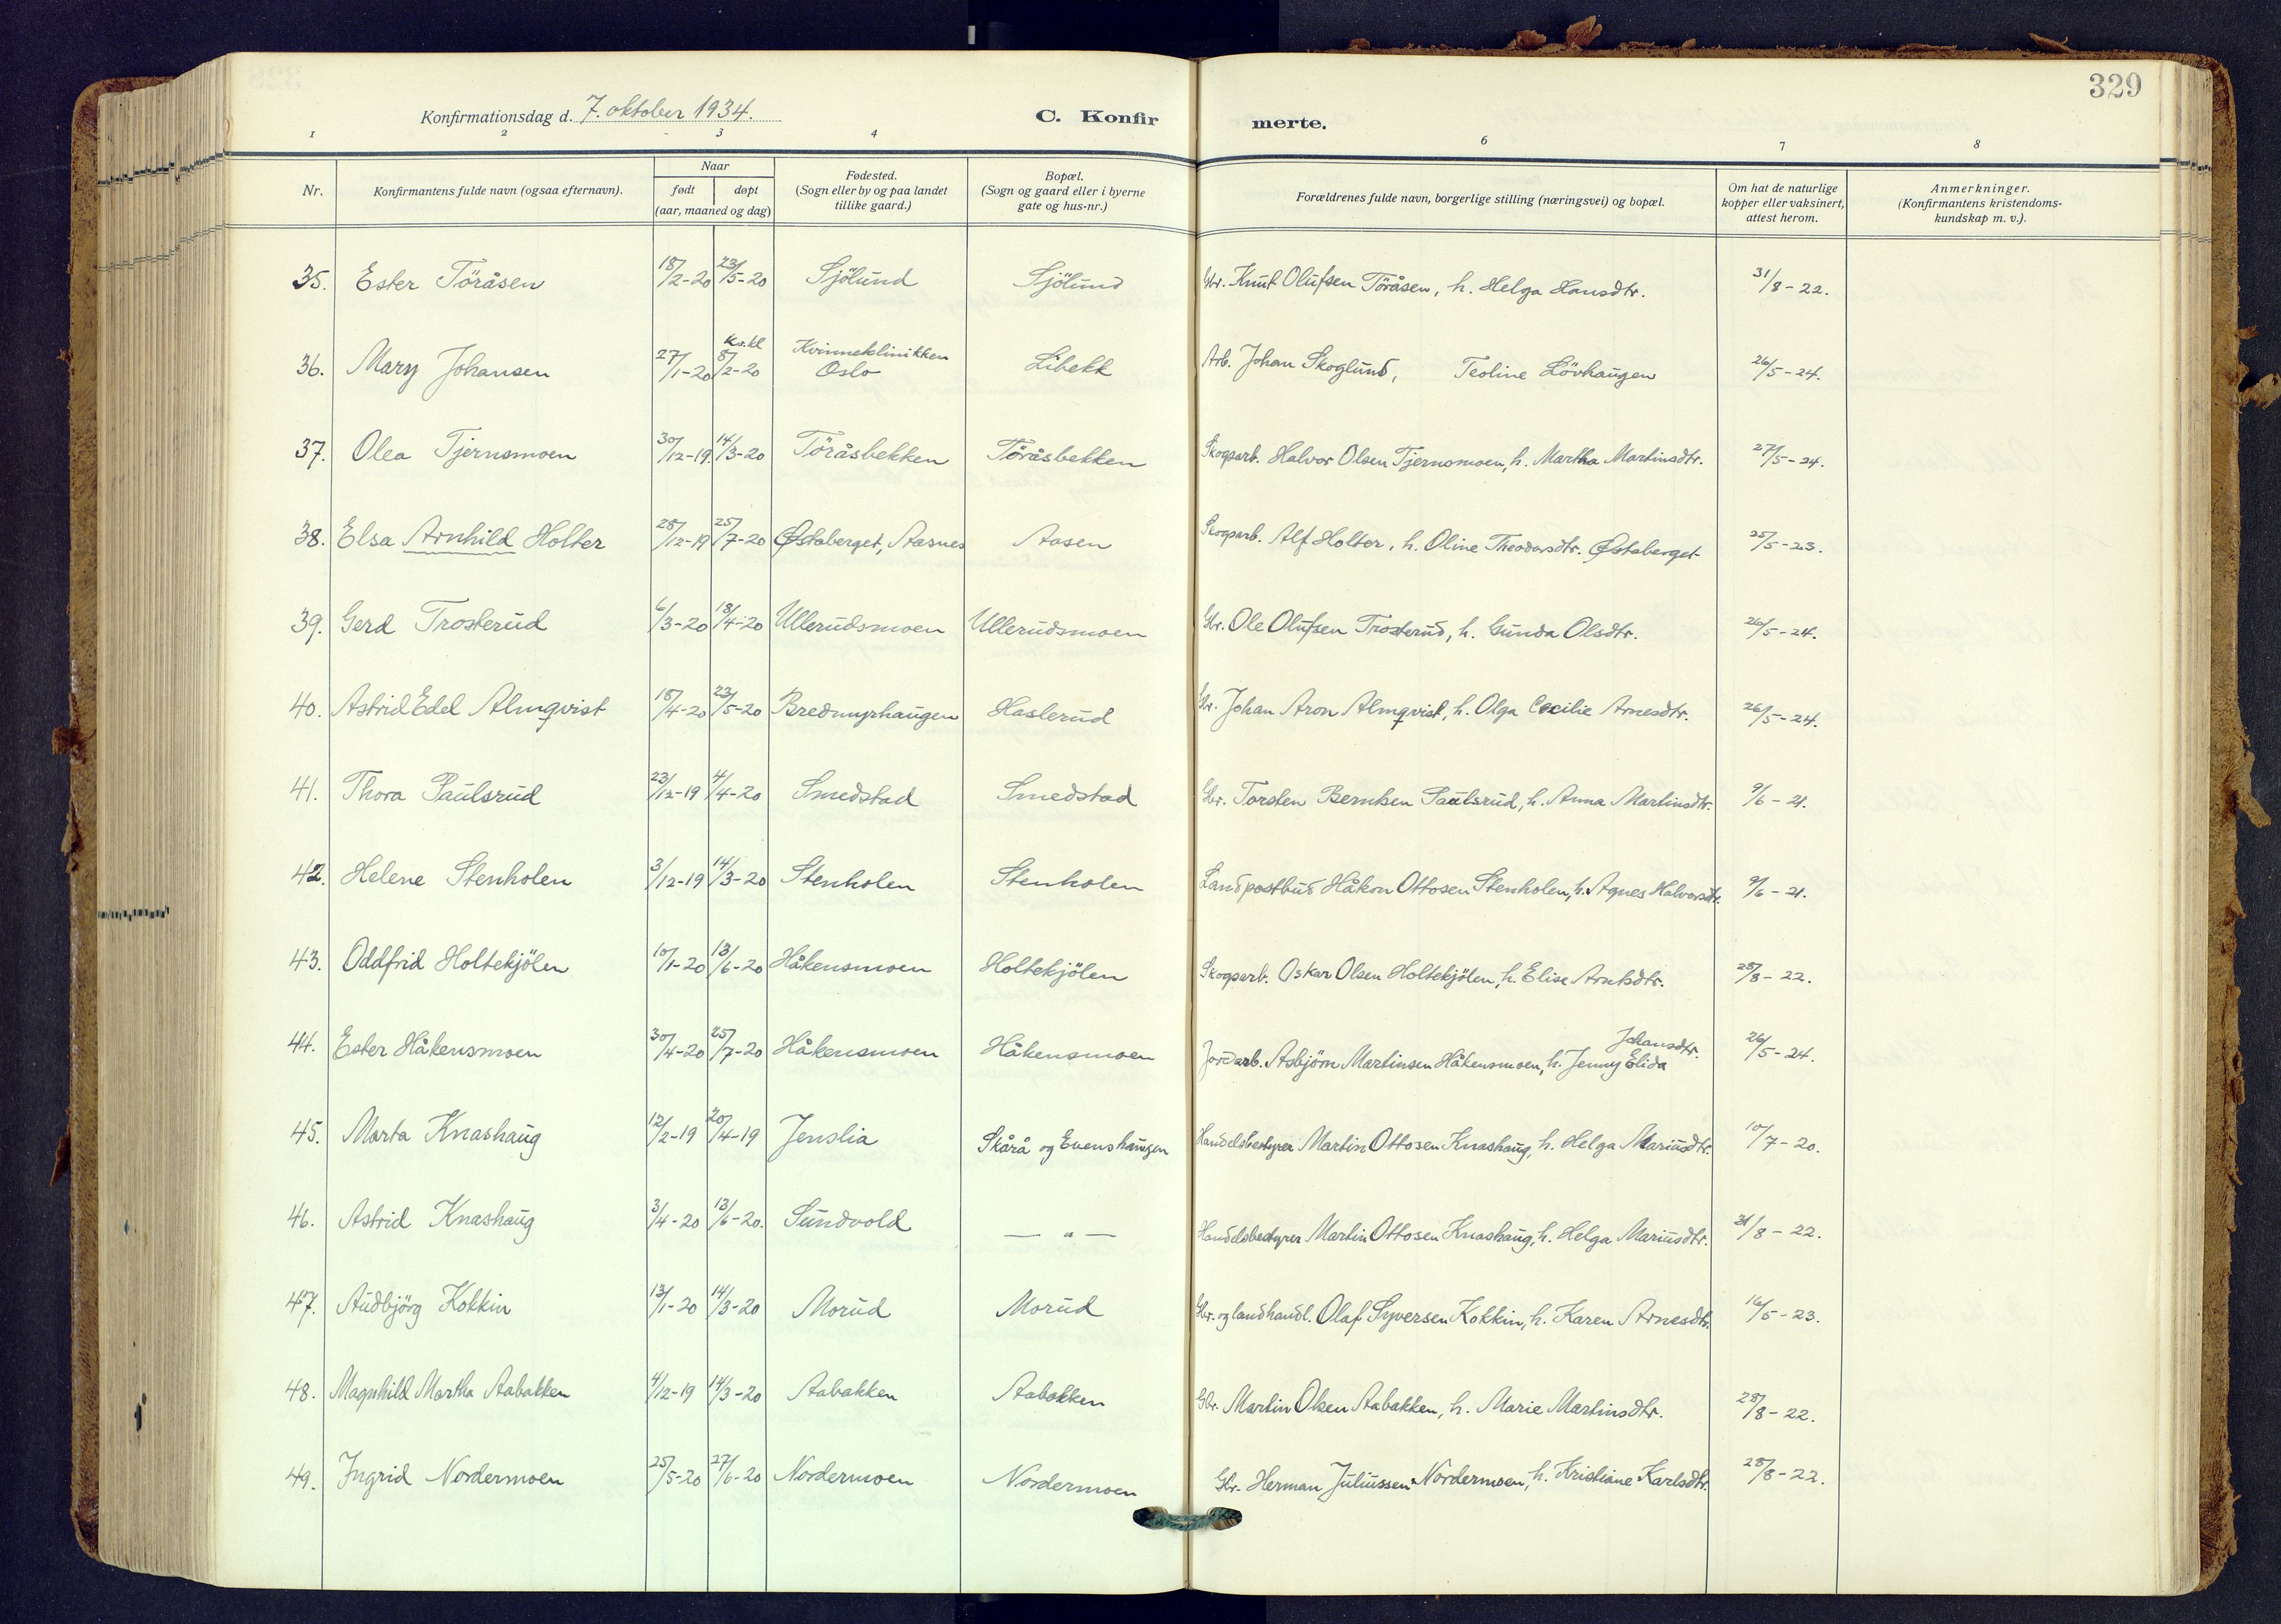 329
Konfirmationsdag d. 7. oktober 1934. C. Konfir merte.
1 2 3 4 6 7 8
Nr. Konfirmantens fulde navn (ogsaa efternavn). Naar født døpt (aar, maaned og dag) Fødested. (Sogn eller by og paa landet tillike gaard.) Bopæl. (Sogn og gaard eller i byerne gate og hus-nr.) Forældrenes fulde navn, borgerlige stilling (næringsvei) og bopæl. Om hat de naturlige kopper eller vaksinert, attest herom. Anmerkninger. (Konfirmantens kristendoms-kundskap m. v.).
35. Ester Töråsen 18/2-20 23/5-20 Sjölund Sjölund Gbr. Knut Olufsen Töråsen, h. Helga Hansdtr. 31/8-22.
36. Mary Johansen 27/1-20 Kv.kl 8/2-20 Kvinneklinikken Oslo Libekk Arb. Johan Skoglund, Teoline Lövhaugen 26/5-24.
37. Olea Tjernsmoen 30/12-19. 14/3-20 Töråsbekken Töråsbekken Skogsarb. Halvor Olsen Tjernsmoen, h. Martha Martinsdtr. 27/5-24.
38. Elsa Arnhild Holter 28/12-19 25/7-20 Østaberget, Aasnes Aasen Skogsarb. Alf Holter, h. Oline Theodorsdtr. Østaberget 25/5-23.
39. Gerd Trosterud 6/3-20 18/4-20 Ullerudsmoen Ullerudsmoen Gbr. Ole Olufsen Trosterud, h. Gunda Olsdtr. 26/5-24.
40. Astrid Edel Almqvist 18/4-20 23/5-20 Bredmyrhaugen Haslerud Gbr. Johan Aron Almqvist, h. Olga Cecilie Arnesdtr. 26/5-24.
41. Thora Paulsrud 23/12-19 4/4-20 Smedstad Smedstad Gbr. Torsten Berntsen Paulsrud, h. Anna Martinsdtr. 9/6-21.
42. Helene Stenholen 3/12-19 14/3-20 Stenholen Stenholen Landpostbud Håkon Ottosen Stenholen, h. Agnes Halvorsdtr. 9/6-21.
43. Oddfrid Holtekjölen 10/1-20 13/6-20 Håkensmoen Holtekjölen Skogsarb. Oskar Olsen Holtekjölen, h. Elise Arntsdtr. 28/8-22.
44. Ester Håkensmoen 30/4-20 25/7-20 Håkensmoen Håkensmoen Jordarb. Asbjörn Martinsen Håkensmoen, h. Jenny Elida Johansdtr. 26/5-24.
45. Marta Knashaug 12/2-19 20/4-19 Jenslia Skårå og Evenshaugen Handelsbestyrer Martin Ottosen Knashaug, h. Helga Mariusdtr. 10/7-20.
46. Astrid Knashaug 3/4-20 13/6-20. Sundvold — " — Handelsbestyrer Martin Ottosen Knashaug, h. Helga Mariusdtr. 31/8-22.
47. Audbjörg Kokkin 13/1-20 14/3-20 Morud Morud Gbr. og landhandl. Olaf Syversen Kokkin, h. Karen Arnesdtr. 16/5-23.
48. Magnhild Martha Aabakken 4/12-19 14/3-20 Aabakken Aabakken Gbr. Martin Olsen Aabakken, h. Marie Martinsdtr. 28/8-22.
49. Ingrid Nordermoen 25/5-20 27/6-20 Nordermoen Nordermoen Gbr. Herman Juliussen Nordermoen, h. Kristiane Karlsdtr. 28/8-22.